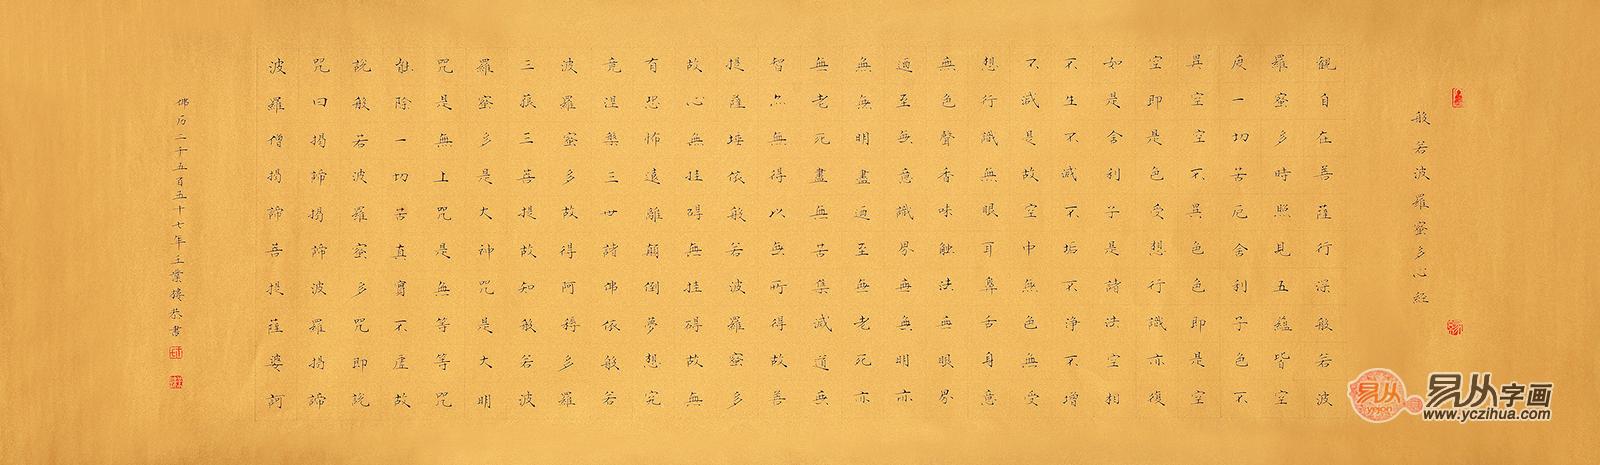 般若波羅蜜多心經
觀自在菩薩行深般若波
羅蜜多時照見五蘊皆空
度一切苦厄舍利子色不
異空空不異色色即是空
空即是色受想行識亦復
如是舍利子是諸法空相
不生不滅不垢不淨不增
不減是故空中無色無受
想行識無眼耳鼻舌身意
無色聲香味觸法無眼界
迺至無意識界無無明亦
無無明盡迺至無老死亦
無老死盡無苦集滅道無
智亦無得以無所得故菩
提薩埵依般若波羅蜜多
故心無挂碍無挂碍故無
有恐怖遠離顛倒夢想究
竟涅槃三世諸佛依般若
波羅蜜多故得阿耨多羅
三藐三菩提故知般若波
羅蜜多是大神咒是大明
咒是無上咒是無等等咒
能除一切苦真實不虛故
說般若波羅蜜多咒即說
咒曰揭諦揭諦波羅揭諦
波羅僧揭諦菩提薩婆訶
佛历二千五百五十七年王業樓恭書
易从
yczh.com
易从字画
www.yczihua.com